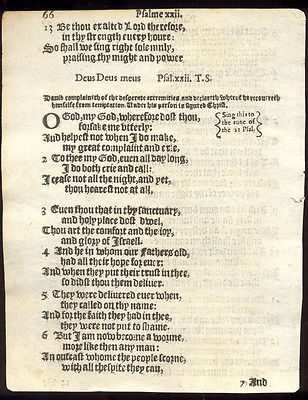 66 Psalme xxii.
13 Be thou exalted Lord therefore,
in thy strength euery houre:
So shall we sing right solemnly,
praising thy might and power.
Deus Deus meus Psal. xxii. T.S.
Dauid complaineth of the desperate extremities and declareth whereof he recouereth
himselfe from temptation. Under his person is figured Christ.
O God, my God, wherefore dost thou,
forsake me vtterly:
And helpest not when I do make,
my great complaint and crie,
Sing this to
the tune of
the 21 Psal.
2 To thee my God, euen all day long,
I do both crie and call:
I cease not all the night, and yet,
thou hearest not at all.
3 Euen thou that in thy sanctuary,
and holy place dost dwel,
Thou art the comfort and the ioy,
and glory of Israel.
4 And he in whom our Fathers old,
had all their hope for euer:
And when they put their trust in thee,
so didst thou them deliuer.
5 They were deliuered euer when,
they called on thy name:
And for the faith they had in thee,
they were not put to shame.
6 But I am now become a worme,
more like then any man:
An outcast whome the people scorne,
with all the spite they can,
7 And